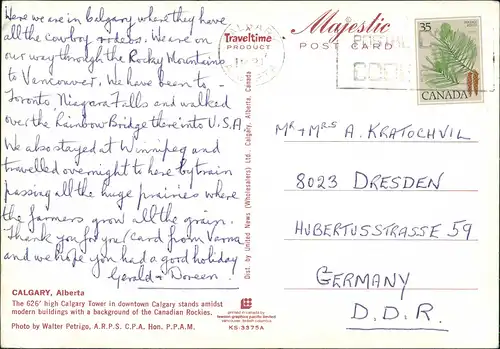 Here we are in Calgary where they have
all the cowboy rodeos. We are on
our way through the Rocky Mountains
to Vancouver. We have been to -
Toronto, Niagara Falls and walked
over the Rainbow Bridge there into U.S.A
We also stayed at Winnipeg and
travelled overnight to here by train
passing all the huge prairies where
the farmers grow all the grain.
Thank you for your card from Varna
and we hope you had a good holiday
Gerald & Doreen
CALGARY, Alberta
The 626' high Calgary Tower in downtown Calgary stands amidst
modern buildings with a background of the Canadian Rockies.
Photo by Walter Petrigo, A.R.P.S. C.P.A. Hon. P.P.A.M.
Traveltime
PRODUCT
Dist. by United News (Wholesalers) Ltd. Calgary, Alberta, Canada
printed in canada by
vancouver british columbia
KS-3375A
Majestic
POST CARD
POSTAL
CODE
35
CANADA
Mr & Mrs A. KRATOCHVIL
8023 DRESDEN
HUBERTUSSTRASSE 59
GERMANY
D.D.R.